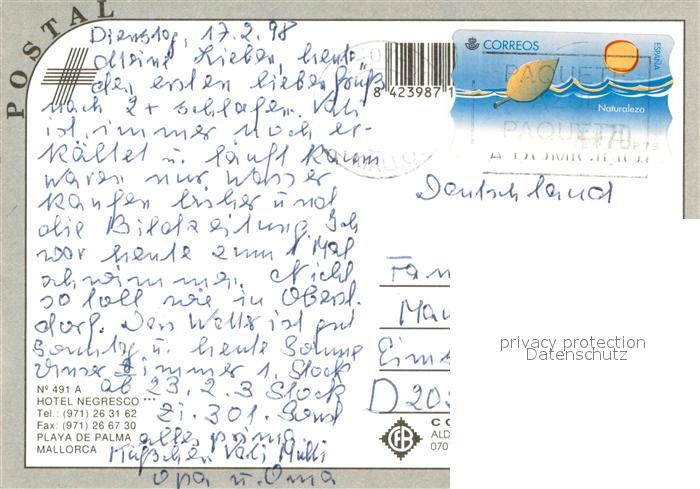 POSTAL
Dienstag, 17.2.98
Meine Lieben, heute
den ersten lieben Gruß
nach 2 + schlagen. Vati
ist immer noch er-
kältet u. läuft kaum
waren nur Wasser
kaufen bisher und
die Bildzeitung. Ich
war heute zum 1 Mal
schwimmen. Nicht
so toll wie in Oberst.
dorf. Das Wetter ist gut
Sonntag u. heute Sonne
Unser Zimmer 1. Stock
ab 23.2. 3 Stock
Zi. 301. Sonst
alles prima.
Vati Mutti
Opa u. Oma
Nº 491 A
HOTEL NEGRESCO ***
Tel.: (971) 26 31 62
Fax: (971) 26 67 30
PLAYA DE PALMA
MALLORCA
8 423987 1
CORREOS
ESPAÑA
Naturaleza
PAQUET
PAQUET
70 PTS
Deutschland
Fam
Mau
Eims
D 20
CO
ALD
070
privacy protection
Datenschutz